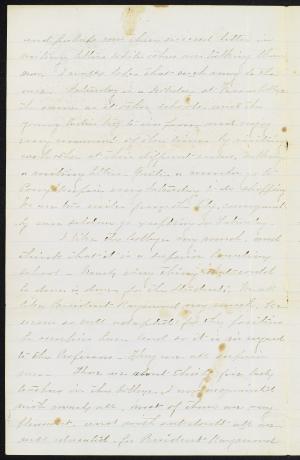 and perhaps some have received letters in
writing letters while others are talking than
now. I wrote to be that
one. Saturday is a holiday at Vassar College
the same as at other schools, and the
young ladies try to and enjoy
every moment of their time by visiting
each other at their different rooms, talking
writing letters. Quite a number go to
Poughkeepsie every Saturday to do shopping
It is two miles from the City, consequently
we seldom go excepting on Saturday.
I like the College very much, and
think that it is a superior boarding
school - Nearly every thing that could
be done is done for the students; we all
like President Raymond very much. He
seems so well adapted for the position
he occupies here and so it is in regard
to the Professors - They are all superior
men - There are about thirty five lady
teachers in the College, I am acquainted
with nearly all, most of them are very
pleasant, and with out doubt all are
well educated - for President Raymond